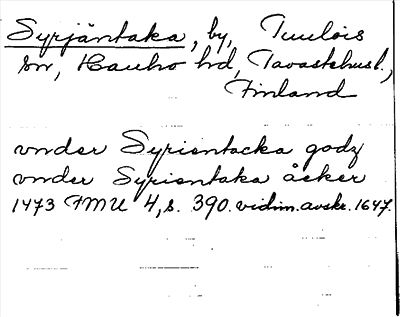 Syrjäntaka, by, Tuulois
sn, Hauho hd, Tavastehusl.,
Finland
vnder Syrientacka godz
vnder Syrientaka åcker
1473 FMU 4, s. 390. vidim. avskr. 1647.